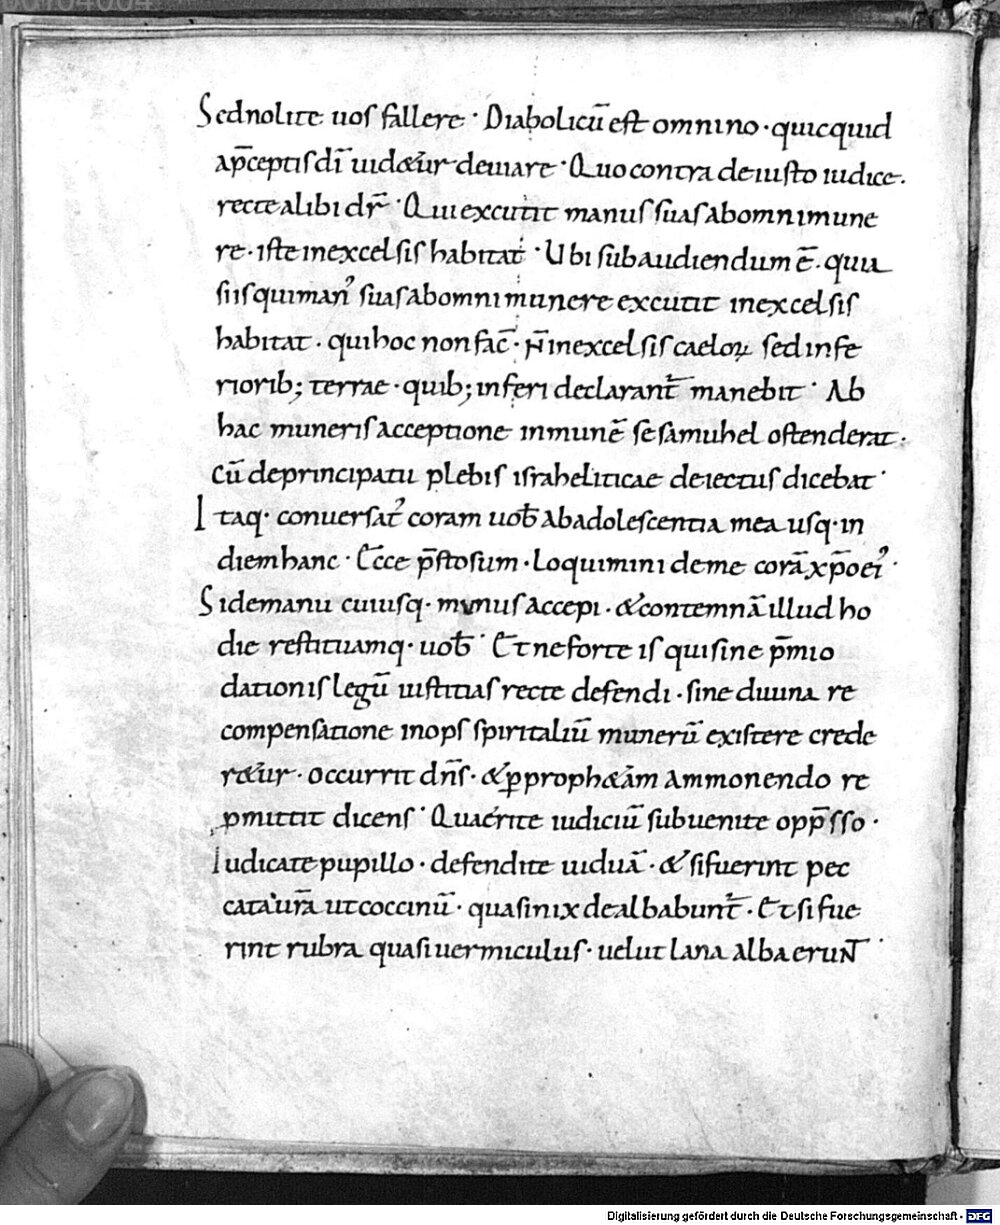 Sed nolite uos fallere · Diabolicū est omnino · quicquid
a p̄ceptis dī uidetur deuiare · Quo contra de iusto iudice.
recte alibi dr̄ · Qui excutit manus suas ab omni mune
re · iste in excelsis habitat · Ubi subaudiendum ē · quia
si is qui man᾽ suas ab omni munere excutit in excelsis
habitat · qui hoc non fac̄ · n̄ in excelsis caeloꝝ sed infe
riorib; terrae · quib; inferi declarant̄ manebit · Ab
hac muneris acceptione inmunē se samuhel ostenderat ·
Cū de principatu plebis israheliticae deiectus dicebat ·
Itaq · conuersat᾽ coram uob̄ ab adolescentia mea usq · in
diem hanc · Ecce p̄sto sum · Loquimini de me corā xp̄o ei᾽ ·
Si de manu cuiusq · munus accepi · & contemnā illud ho
die restituamq · uob̄ · Et ne forte is qui sine p̄mio
dationis legū iustitias recte defendi · sine diuina re
compensatione inops spiritaliū munerū existere crede
r&ur · occurrit dn̄s · & ꝑ proph&ām ammonendo re
pmittit dicens · Quaerite iudiciū subuenite opp̄sso ·
Iudicate pupillo · defendite uiduā · & si fuerint pec
cata ur̄a ut coccinū · quasi nix dealbabunt̄ · Et si fue
rint rubra quasi uermiculus · uelut lana alba erunt ·
Digitalisierung gefördert durch die Deutsche Forschungsgemeinschaft - DFG